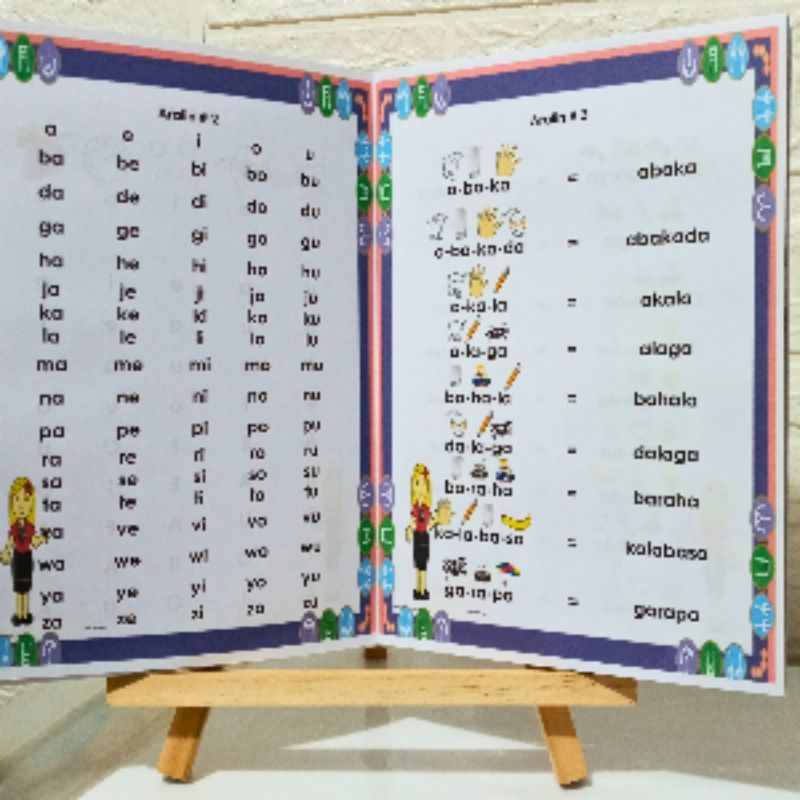 Aralin # 2
a e i o u
ba be bi bo bu
da de di do du
ga ge gi go gu
ha he hi ho hu
ja je ji jo ju
ka ke ki ko ku
la le li lo lu
ma me mi mo mu
na ne ni no nu
pa pe pi po pu
ra re ri ro ru
sa se si so su
ta te ti to tu
va ve vi vo vu
wa we wi wo wu
ya ye yi yo yu
za ze zi zo zu
Aralin # 3
a-ba-ka = abaka
a-ba-ka-da = abakada
a-ka-la = akala
a-la-ga = alaga
ba-ha-la = bahala
da-la-ga = dalaga
ba-ra-ha = baraha
ka-la-ba-sa = kalabasa
ga-ra-pa = garapa